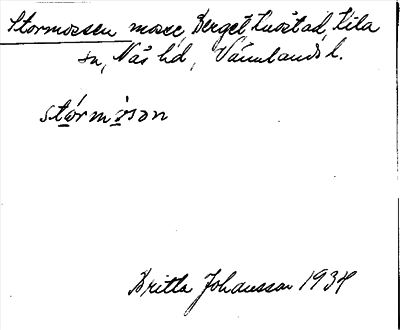 Stormossen mosse, Berget Knöstad, Kila
sn, Näs hd, Värmlands l.
stórmòsən
Britta Johansson 1934